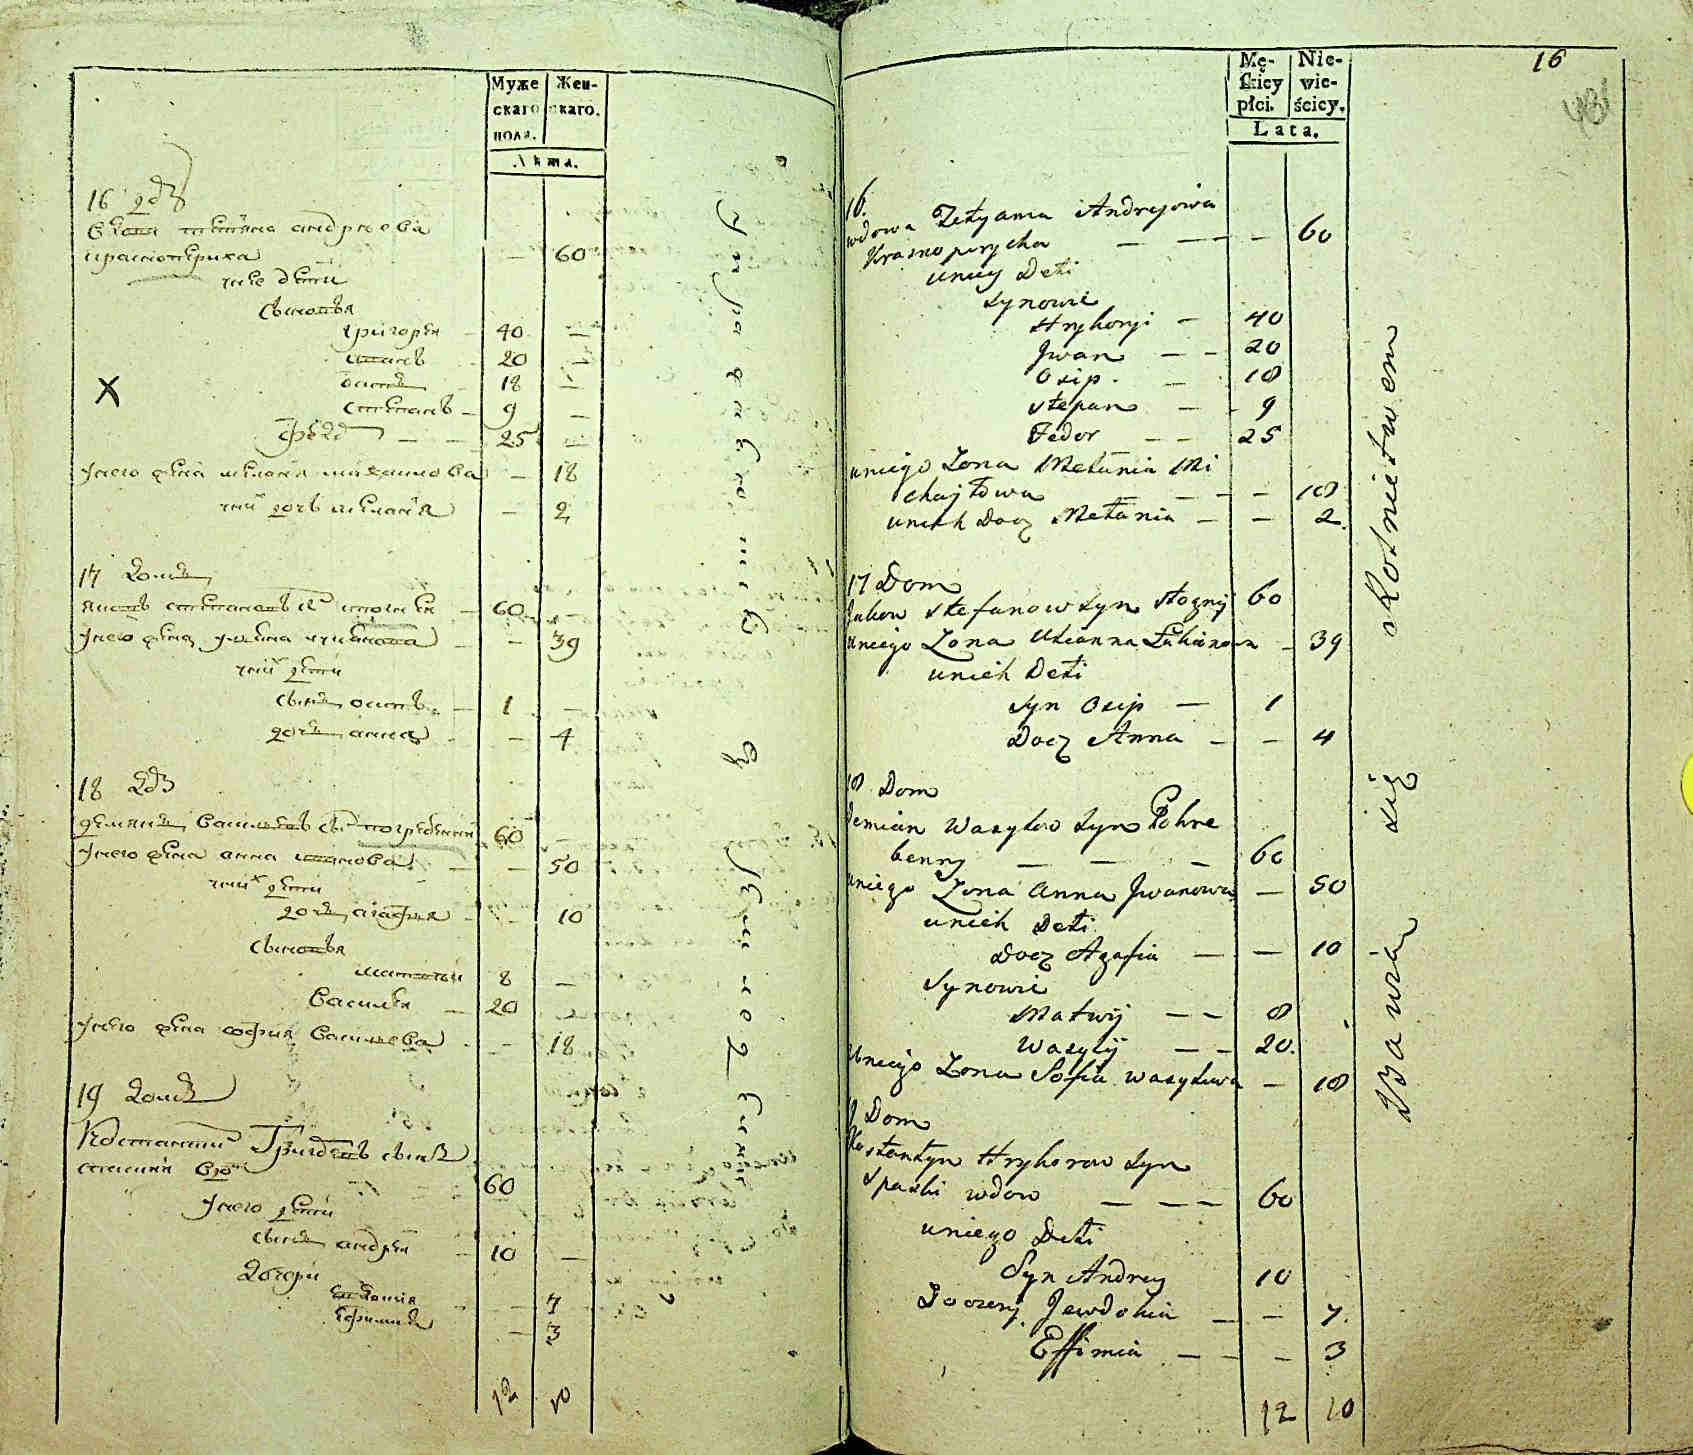 Муже
скаго
пола.
Жен-
скаго.
Лѣта.
16 двз
вдова татяна андрѣева
краснопериха
60
унее дети
Сыновья
григорей - 40 -
иванъ 20 -
осипъ 18 -
X
степанъ - 9 -
федо - - 25 -
унего жена мелания михаилова - 18
унихъ дочь мелания - 2
17 домъ
яковъ степановъ сынъ - 60 -
унего жена улияна - 39
унихъ дети
сынъ осипъ - 1 -
дочь анна - - 4
18 двз
демянъ василевъ сынъ погребенный 60 -
унего жена анна иванова - - 50
унихъ дети
дочь агафия - - 10
сыновья
матвей 8 -
василей - 20 -
унего жена софия василева - - 18
19 домъ
Костантинъ Григоревъ сынъ
60
унего дети
сынъ андрей - 10 -
дочери
евдокия - - 7
ефимия - 3
12 10
Mę-
skiey
płci.
Nie-
wie-
ściey.
Lata.
16
431
16.
wdowa Tetyanna Andrejowa
Krasnoperycha - - - - 60
uniey Deti
synowie
Hryhoryi - 40
Jwan - - 20
Osip. - 18
Stepan - - 9
Fedor - - 25
uniego Zona Metania Mi
chajłowa - - - - 18
unich Docz Metania - - 2.
17 Dom
Jakow Stefanow Syn Stoznij 60
uniego Zona Ulianna Łukianowa - 39
unich Deti
Syn Osip - 1
Docz Anna - - 4
18 Dom
Demian Wasylow Syn Pohre
benny - - - 60
uniego Zona Anna Jwanowa - 50
unich Deti
Docz Agafia - - 10
Synowie
Matwij - - 8
Wasylij - - 20.
Uniego Zona Sofia wasylewa - 18
19 Dom
Kostantyn Hryhorow Syn
Spaski wdow - - - 60
uniego Deti
Syn Andrey 10
Doczery Jewdokia - - 7.
Effimia - - - 3
12 10
Bawia się Rolnictwem